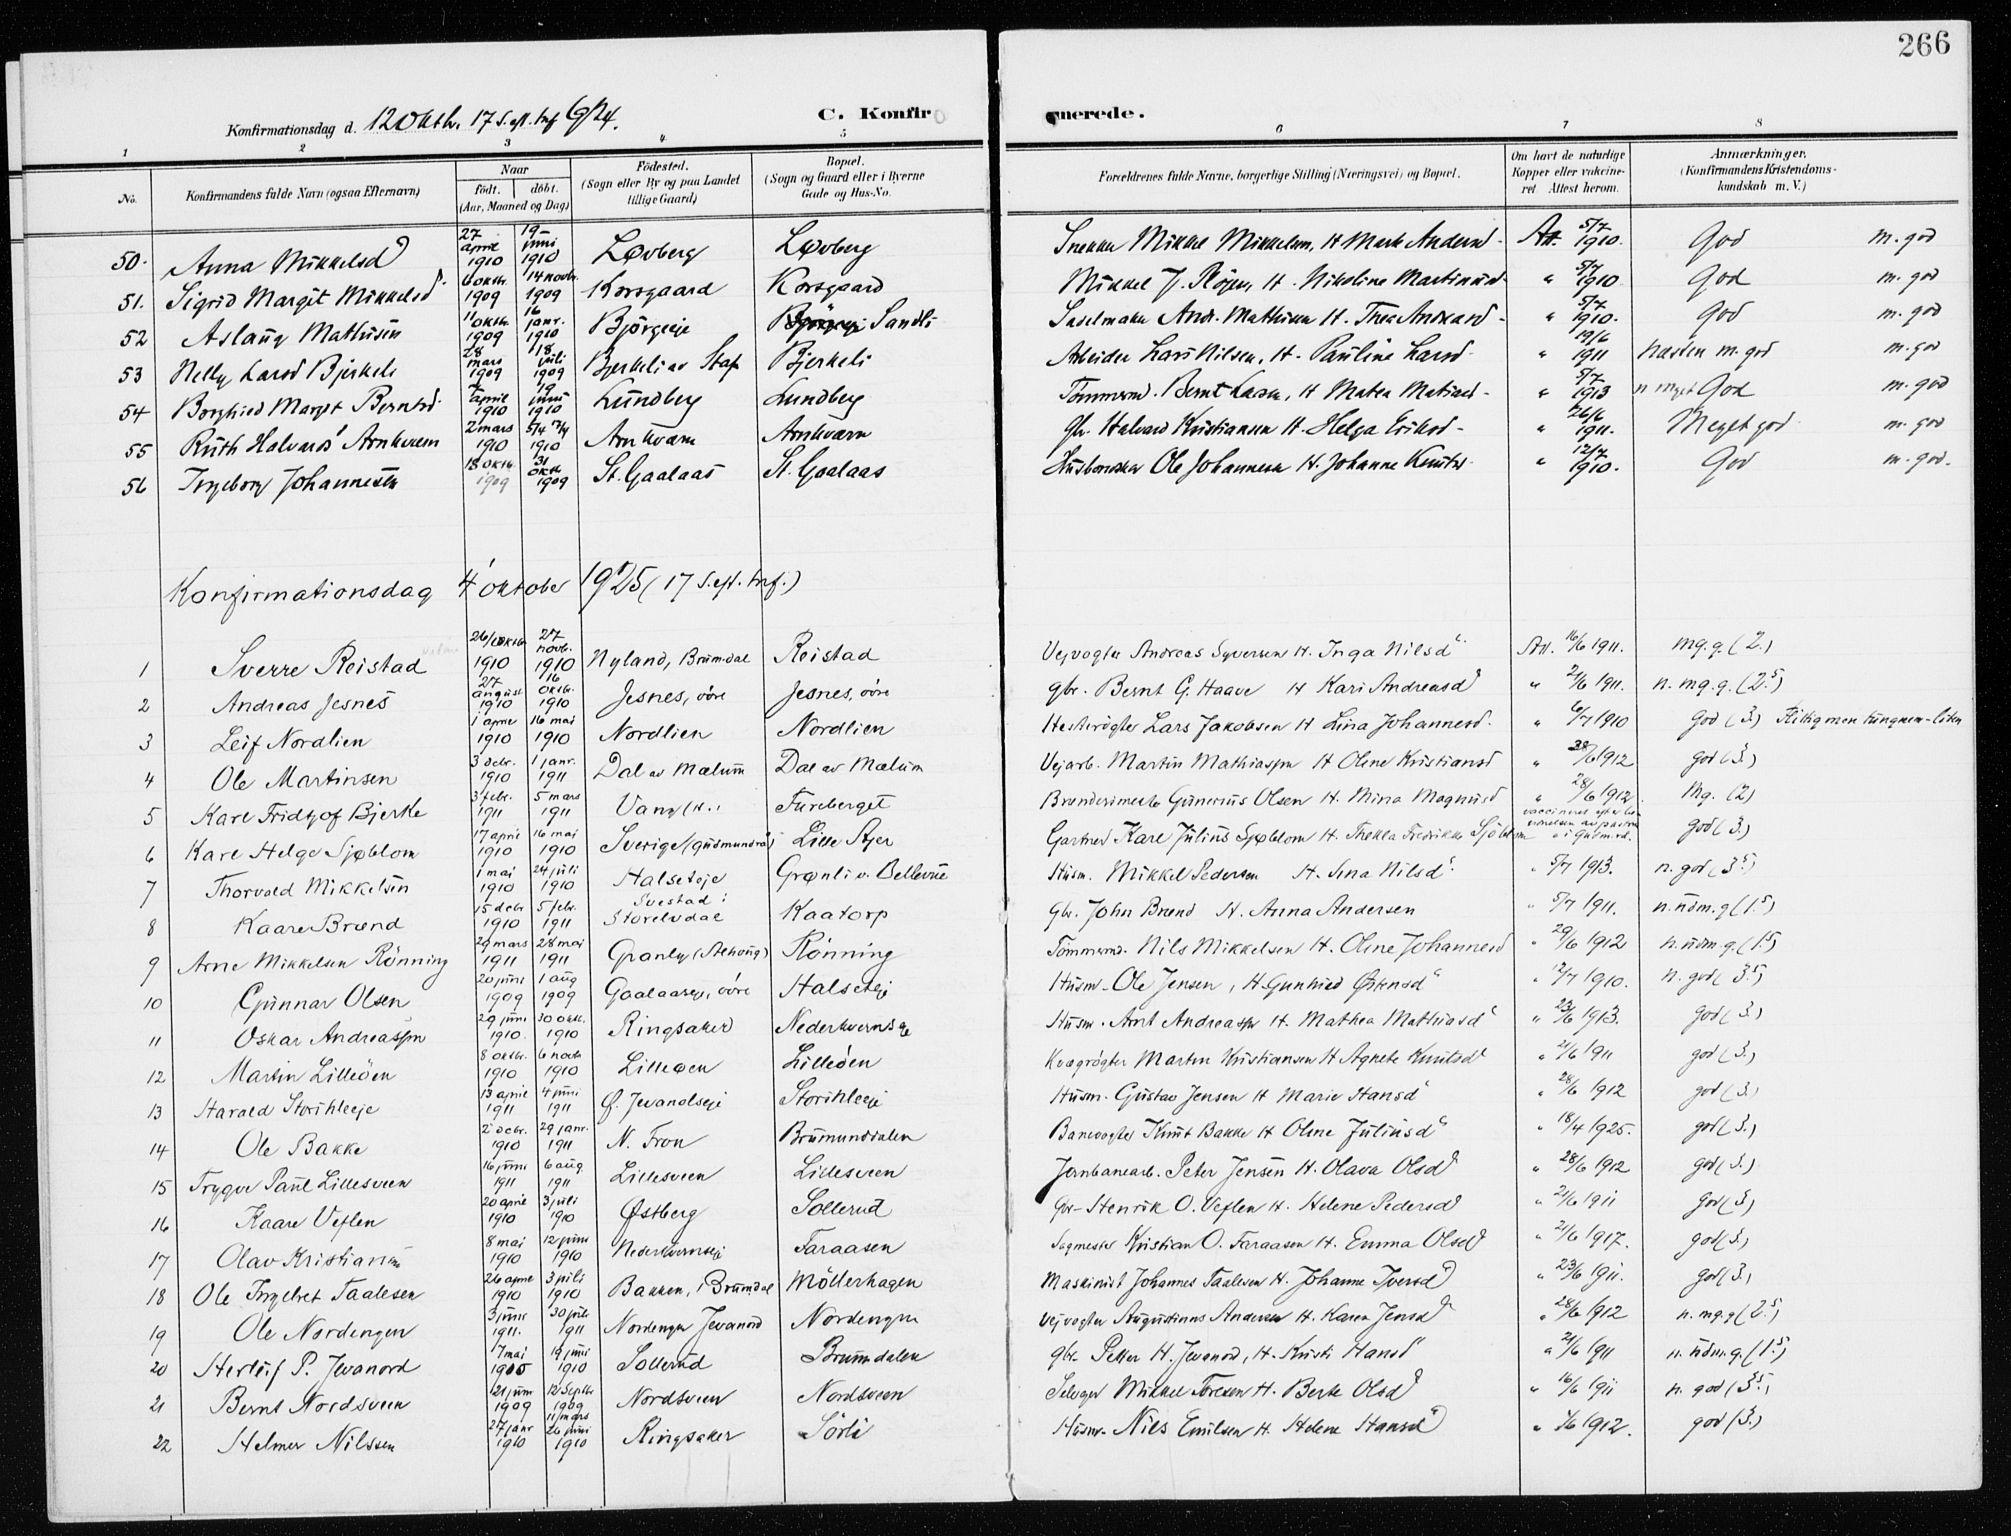 266
Konfirmationsdag d. 12 Oktb. 17 S. eft. trf 1924.
C. Konfirmerede.
1 2 3 4 5 6 7 8
No. Konfirmandens fulde Navn (ogsaa Efternavn) Naar födt. döbt. (Aar, Maaned og Dag) Födested. (Sogn eller By og paa Landet tillige Gaard) Bopæl. (Sogn og Gaard eller i Byerne Gade og Hus-No. Forældrenes fulde Navne, borgerlige Stilling (Næringsvei) og Bopæl. Om havt de naturlige Kopper eller vakcineret Attest herom. Anmærkninger. (Konfirmandens Kristendomskundskab m. V.)
50. Anna Mikkelsd 27 april 1910 19 juni 1910 Løvberg Løvberg Snekker Mikkel Mikkelsen, H Marte Andersd. Att. 5/7 1910. God m. god
51. Sigrid Margit Mikkelsd 6 oktbr. 1909 14 novbr. 1909 Korsgaard Korsgaard Mikkel J. Røjen, H. Nikoline Martinusd. " 5/7 1910 God m. god
52 Aslaug Mathisen 11 oktbr. 1909 16 janr. 1910 Björgeeje Sandli Sadelmaker Andr. Mathisen H. Thea Andreasd. " 5/7 1910. God m. god
53 Nelly Larsd Bjerkeli 28 mars 1909 18 juli 1909 Bjerkeli av Staf Bjerkeli Arbeider Lars Nilsen, H. Pauline Larsd. " 19/6 1911 næsten m. god m. god
54 Borghild Marget Berntsd. april 1910 19 juni 1910 Lundberg Lundberg Tömmerm. Bernt Larsen, H Matea Matiasd. " 5/7 1913 n meget God m. god
55 Ruth Halvards Arnkværn 2 mars 1910 1910 Arnkværn Arnkværn Gbr. Halvard Kristiansen H. Helga Eriksd. " 26/6 1911. Meget god m. god
56 Ingeborg Johannessen 18 oktb. 1909 31 oktb. 1909 St. Gaalaas St. Gaalaas Husbonsker Ole Johannesen H. Johanne Knutsd. " 12/7 1910. God m. god.
Konfirmationsdag 4 oktober 1925 (17 S. eft. trf.)
1 Sverre Reistad 26 oktbr 1910 27 novb. 1910 Nyland, Brumdal Reistad Vejvogter Andreas Syversen H. Inga Nilsd Att. 16/6 1911. mg. g. (2.)
2 Andreas Jesnes 27 august 1910 16 oktbr. 1910 Jesnes, övre Jesnes, övre gbr. Bernt G. Haave H Kari Andreasd " 21/6 1911. n. mg. g. (2.5)
3 Leif Nordlien 1 april 1910 16 mai 1910 Nordlien Nordlien Hesterögter Lars Jakobsen H Lina Johannesd. " 6/7 1910 god (3.) flittig men tungnem-liten
4 Ole Martinsen 3 decbr. 1910 1 janr. 1911 Dal av Mælum Dal av Mælum Vejarb. Martin Mathiassen H Oline Kristiansd " 28/6 1912 god (3.)
5 Karl Fridtjof Bjerke 3 febr. 1911 5 mars 1911 Vang H. Tureberget Brænderimester Gunerius Olsen H. Mina Magnusd " 28/6 1912. Mg. (2)
6 Karl Helge Sjøblom 17 april 1910 16 mai 1910 Sverige (Gudmundrå) Lille Ajer Gartner Karl Julius Sjøblom H. Thekla Fredrikke Sjöblom vaccineret efter be- av pastor i Gudm.rå. god (3.)
7 Thorvald Mikkelsen 1 mai 1910 24 juli 1910 Halseteje Grønli u. Bellevue Husm. Mikkel Pedersen H. Lina Nilsd. " 5/7 1913. n. god (3.5)
8 Kaare Brænd 15 decbr 1910 5 febr. 1911 Svestad i Storelvdal Kaatorp gbr. John Brænd H. Anna Andersen " 5/7 1911. n. udm. g (1.5)
9 Arne Mikkelsen Rönning 29 mars 1911 28 mai 1911 Granly (Alhaug) Rönning Tömmerm. Nils Mikkelsen H. Oline Johannesd " 29/6 1912 n. udm. g. (1.5)
10 Gunnar Olsen 20 juni 1909 1 aug 1909 Gaalaaseje, övre Halseteje Husm. Ole Jensen, H. Gunhild Østensd " 12/7 1910. n. god (3.5)
11 Oskar Andreassen 29 juni 1910. 30 oktbr. 1910 Ringsaker Nederkvernseje Husm. Arnt Andreassen H. Mathea Mathiasd " 23/6 1913. god (3.)
12 Martin Lilleöen 8 oktbr. 1910 6 novbr 1910 Lilleøen Lilleöen Kvægrögter Martin Kristiansen H Agnete Knutsd " 21/6 1911 god (3.)
13 Harald Storihleeje 13 april 1911 4 juni 1911 Ø. Jevanolseje Storihleeje Husm. Gustav Jensen H Marie Hansd " 28/6 1912 god (3.)
14 Ole Bakke 2 decbr. 1910 29 janr. 1911 N. Fron Brumunddalen Banevogter Knut Bakke H Oline Juliusd " 18/4 1925. god (3.)
15 Trygve Paul Lillesveen 16 juni 1911 6 aug 1911 Lillesveen Lillesveen Jernbanearb. Peter Jensen H. Olava Olsd " 28/6 1912 god (3.)
16 Kaare Veflen 20 april 1910 3 juli 1910 Østberg Sollerud Gbr. Henrik O. Veflen H. Helene Pedersd " 21/6 1911 god (3)
17 Olav Kristiansen 8 mai 1910 12 juni 1910 Nederkvernseje Faraasen Sagmester Kristian O. Faraasen H. Emma Olsd " 21/6 1917. god (3.)
18 Ole Ingebret Taalesen 26 april 1910 3 juli 1910 Bakken, i Brumdal Möllerhagen Maskinist Johannes Taalesen H. Johanne Iversd " 23/6 1911. god (3.)
19 Ole Nordengen 3 juni 1911. 30 juli 1911 Nordengen Jevanord Nordengen Vejvogter Augustinus Andersen H. Karen Jensd " 28/6 1912 n. mg. g (2.5)
20 Herleif P. Jevanord 7 mai 1910 19 juni 1910 Sollerud Brumdalen gbr. Petter H. Jevanord, H. Kristi Hansd " 21/6 1911 n. udm. g. (1.5)
21 Bernt Nordsveen 21 juni 1909 12 septbr 1909 Nordsveen Nordsveen Selveger Mikkel Toresen H. Berte Olsd " 16/6 1911 n. god (3.5)
22 Helmer Nilssen 27 janr 1910 11/mars 26 juni 1910 Ringsaker Sörli Husm. Nils Emilsen H. Helene Hansd " 1/6 1912. god (3.)